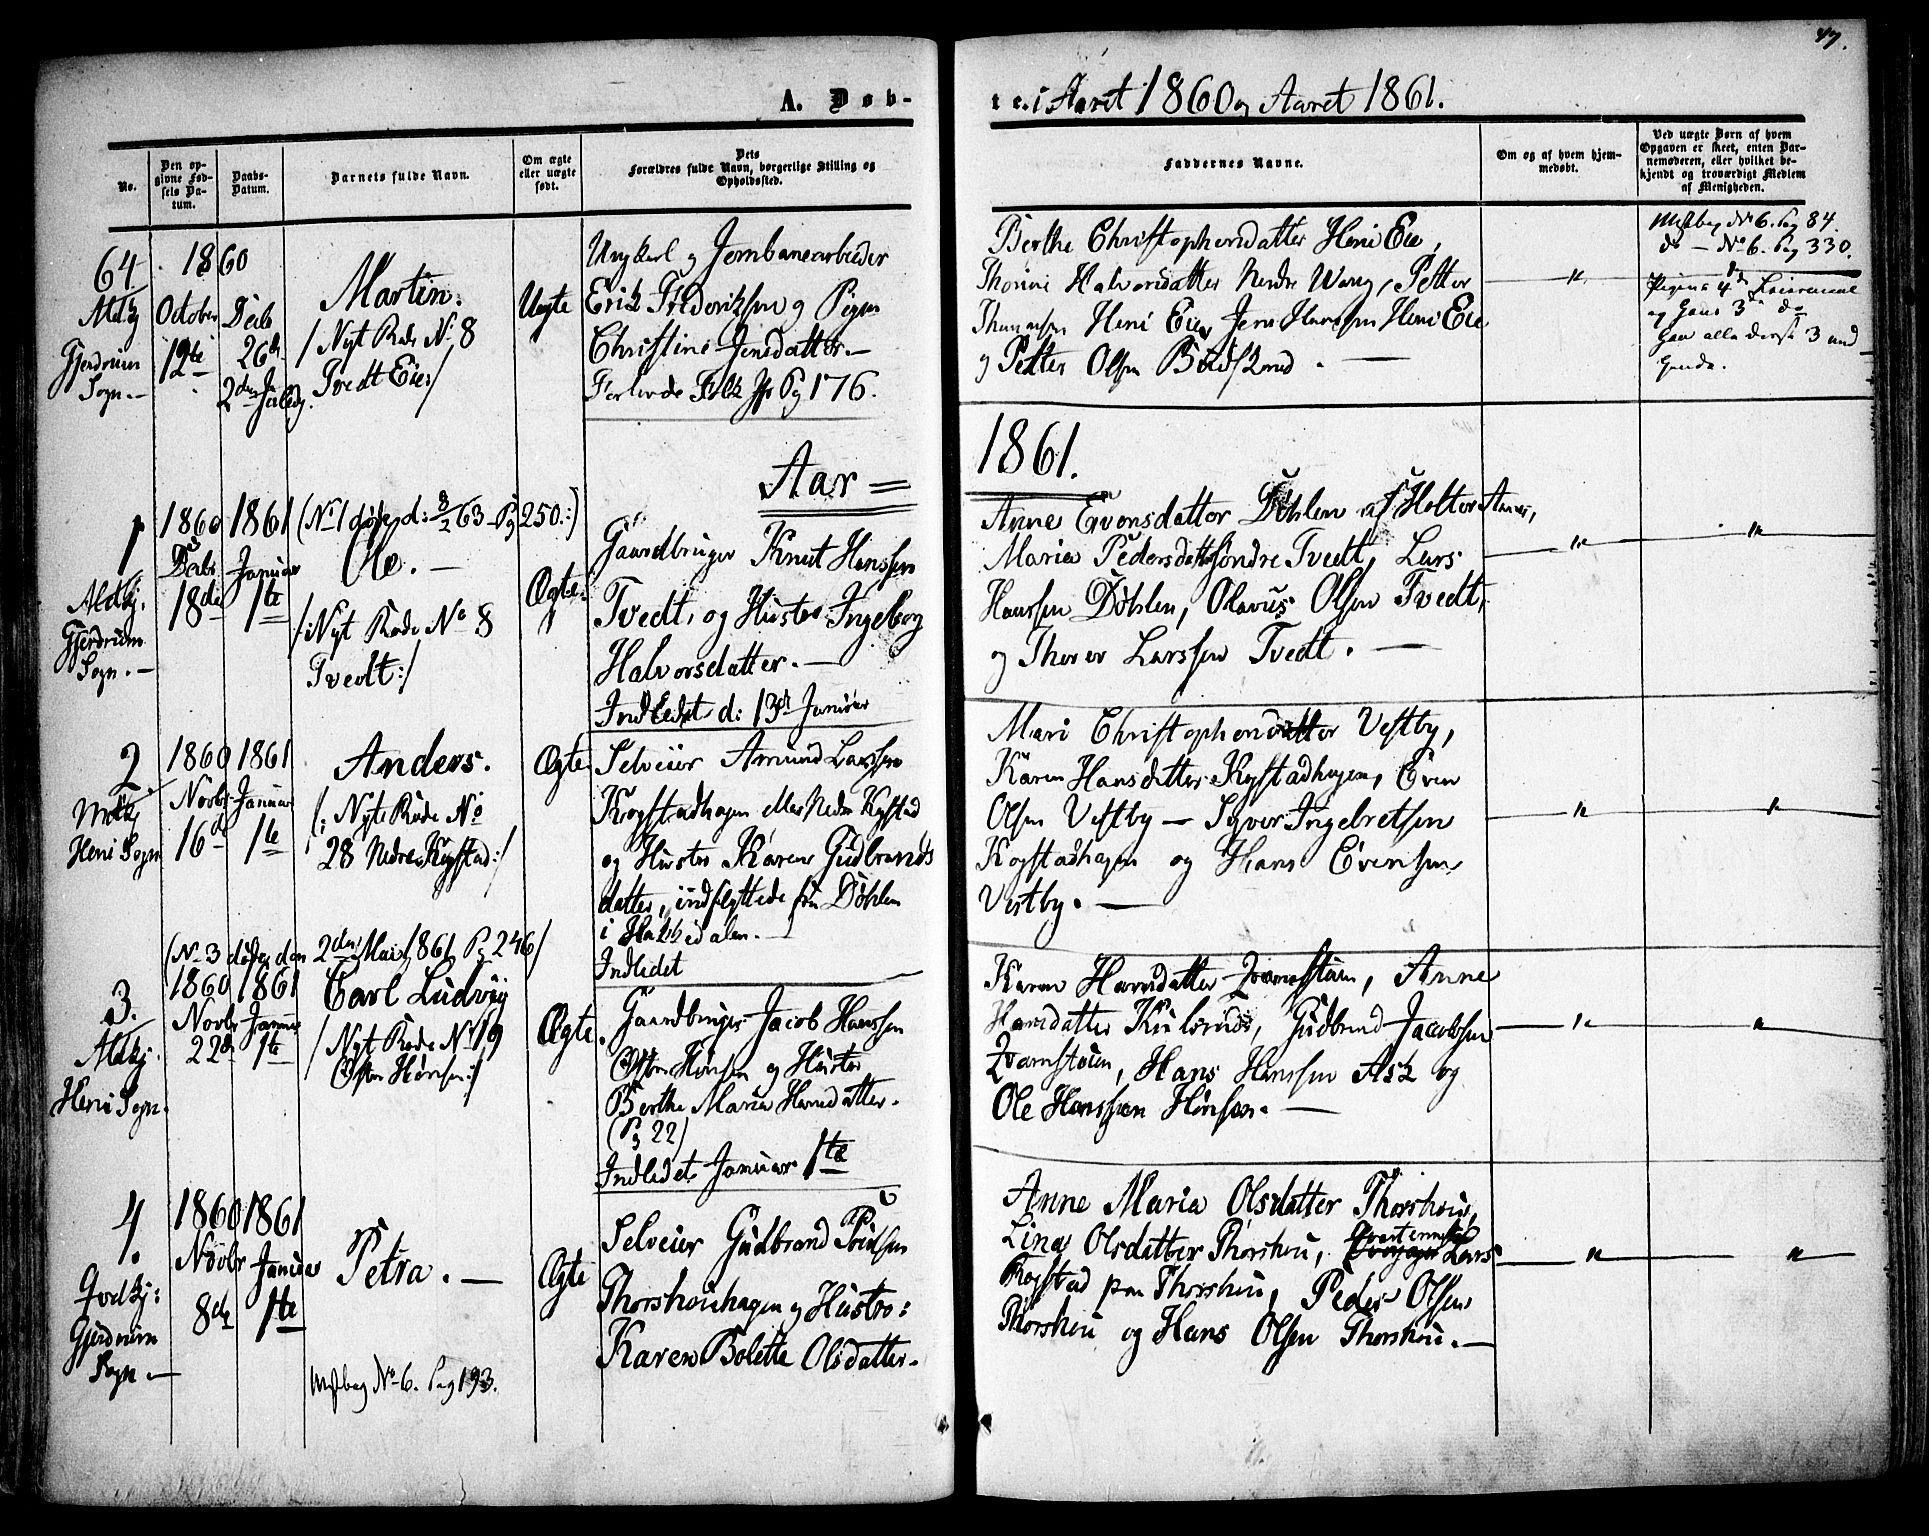 47.
A. Døb-
te. i Aaret 1860 og Aaret 1861.
No.
Den op-
givne Fød-
sels Da-
tum.
Daabs-
Datum.
Barnets fulde Navn.
Om ægte
eller uægte
født.
Dets
Forældres fulde Navn, borgerlige Stilling og
Opholdssted.
Faddernes Navne.
Om og af hvem hjem-
medøbt.
Ved uægte Børn af hvem
Opgaven er skeet, enten Bar-
nemoderen, eller hvilket be-
kjendt og troværdigt Medlem
af Menigheden.
64.
Gjerdrum
Sogn.
1860
October
12te
Decbr
26de
2den Juledag.
Martin.
/ Nyt Rode No 8
Tvedt Eie:/
Uægte
Ungkarl og Jernbanearbeider
Erik Frederiksen og Pigen
Christine Jensdatter.
Pg 176.
Berthe Christophersdatter Heni Eie,
Halvorsdatter Nedre Wang, Petter
Heni Eie, Jens Hansen Heni Eie
og Petter Olsen
"
No 6. Pag 84.
do - No 6. Pag 330.
Aar =
1861.
1
Gjerdrum
Sogn.
1860
Decbr
18de
1861
Januar
1te
(No 1 døde d: 8/2 63 - Pg 250.:)
Ole.
/: Nyt Rode No 8
Tvedt:/
Ægte.
Gaardbruger Knut Hanssen
Tvedt, og Hustro Ingeborg
Halvorsdatter.
Indledet d: 13de Januar
Anne Evensdatter Døhlen af Holter Annex,
Maria Pedersdatter søndre Tvedt, Lars
Hanssen Døhlen, Olavus Olsen Tvedt,
og Thorer Larssen Tvedt.
"
"
2.
Heni Sogn
1860
Novbr
16de
1861
Januar
1te
Anders.
/: Nyt Rode No
28 Nedre Kogstad:/
Ægte
Selveier Amund Larssen
Kogstadhagen eller Nedre Kogstad
og Hustro Karen Gudbrands
datter, indflyttede fra Døhlen
i
Indledet
Mari Christophersdatter Vestby,
Karen Hansdatter Kogstadhagen, Even
Olsen Vestby - Syver Ingebretsen
Kogstadhagen og Hans Evensen
Vestby.
"
"
(No 3 døde den 2den Mai 1861 Pg 246/
3.
Heni Sogn.
1860
Novbr
22de
1861
Januar
1te
Carl Ludvig
/ Nyt Rode No 19
Østre Hønsen:/
Ægte.
Gaardbruger Jacob Hanssen
Østre Hønsen og Hustro
Berthe Maria Hansdatter.
(Pg 22)
Indledet Januar 1te
Karen Hansdatter Qvarnstuen, Anne
Hansdatter Kulsrud, Gudbrand Jacobsen
Qvarnstuen, Hans Hanssen Ask og
Ole Hanssen Hønsen.
"
"
4.
Gjerdrum
Sogn.
1860
Novbr
8de
1861
Januar
1te
Petra.
No 6. Pag 193.
Ægte
Selveier Gudbrand Poulsen
Thorshoughagen og Hustro:
Karen Bolette Olsdatter.
Anne Maria Olsdatter Thorshoug,
Lina Olsdatter Thorshoug, Lars
Kogstad paa Thorshoug, Peder Olsen
Thorshoug og Hans Olsen Thorshoug.
"
"